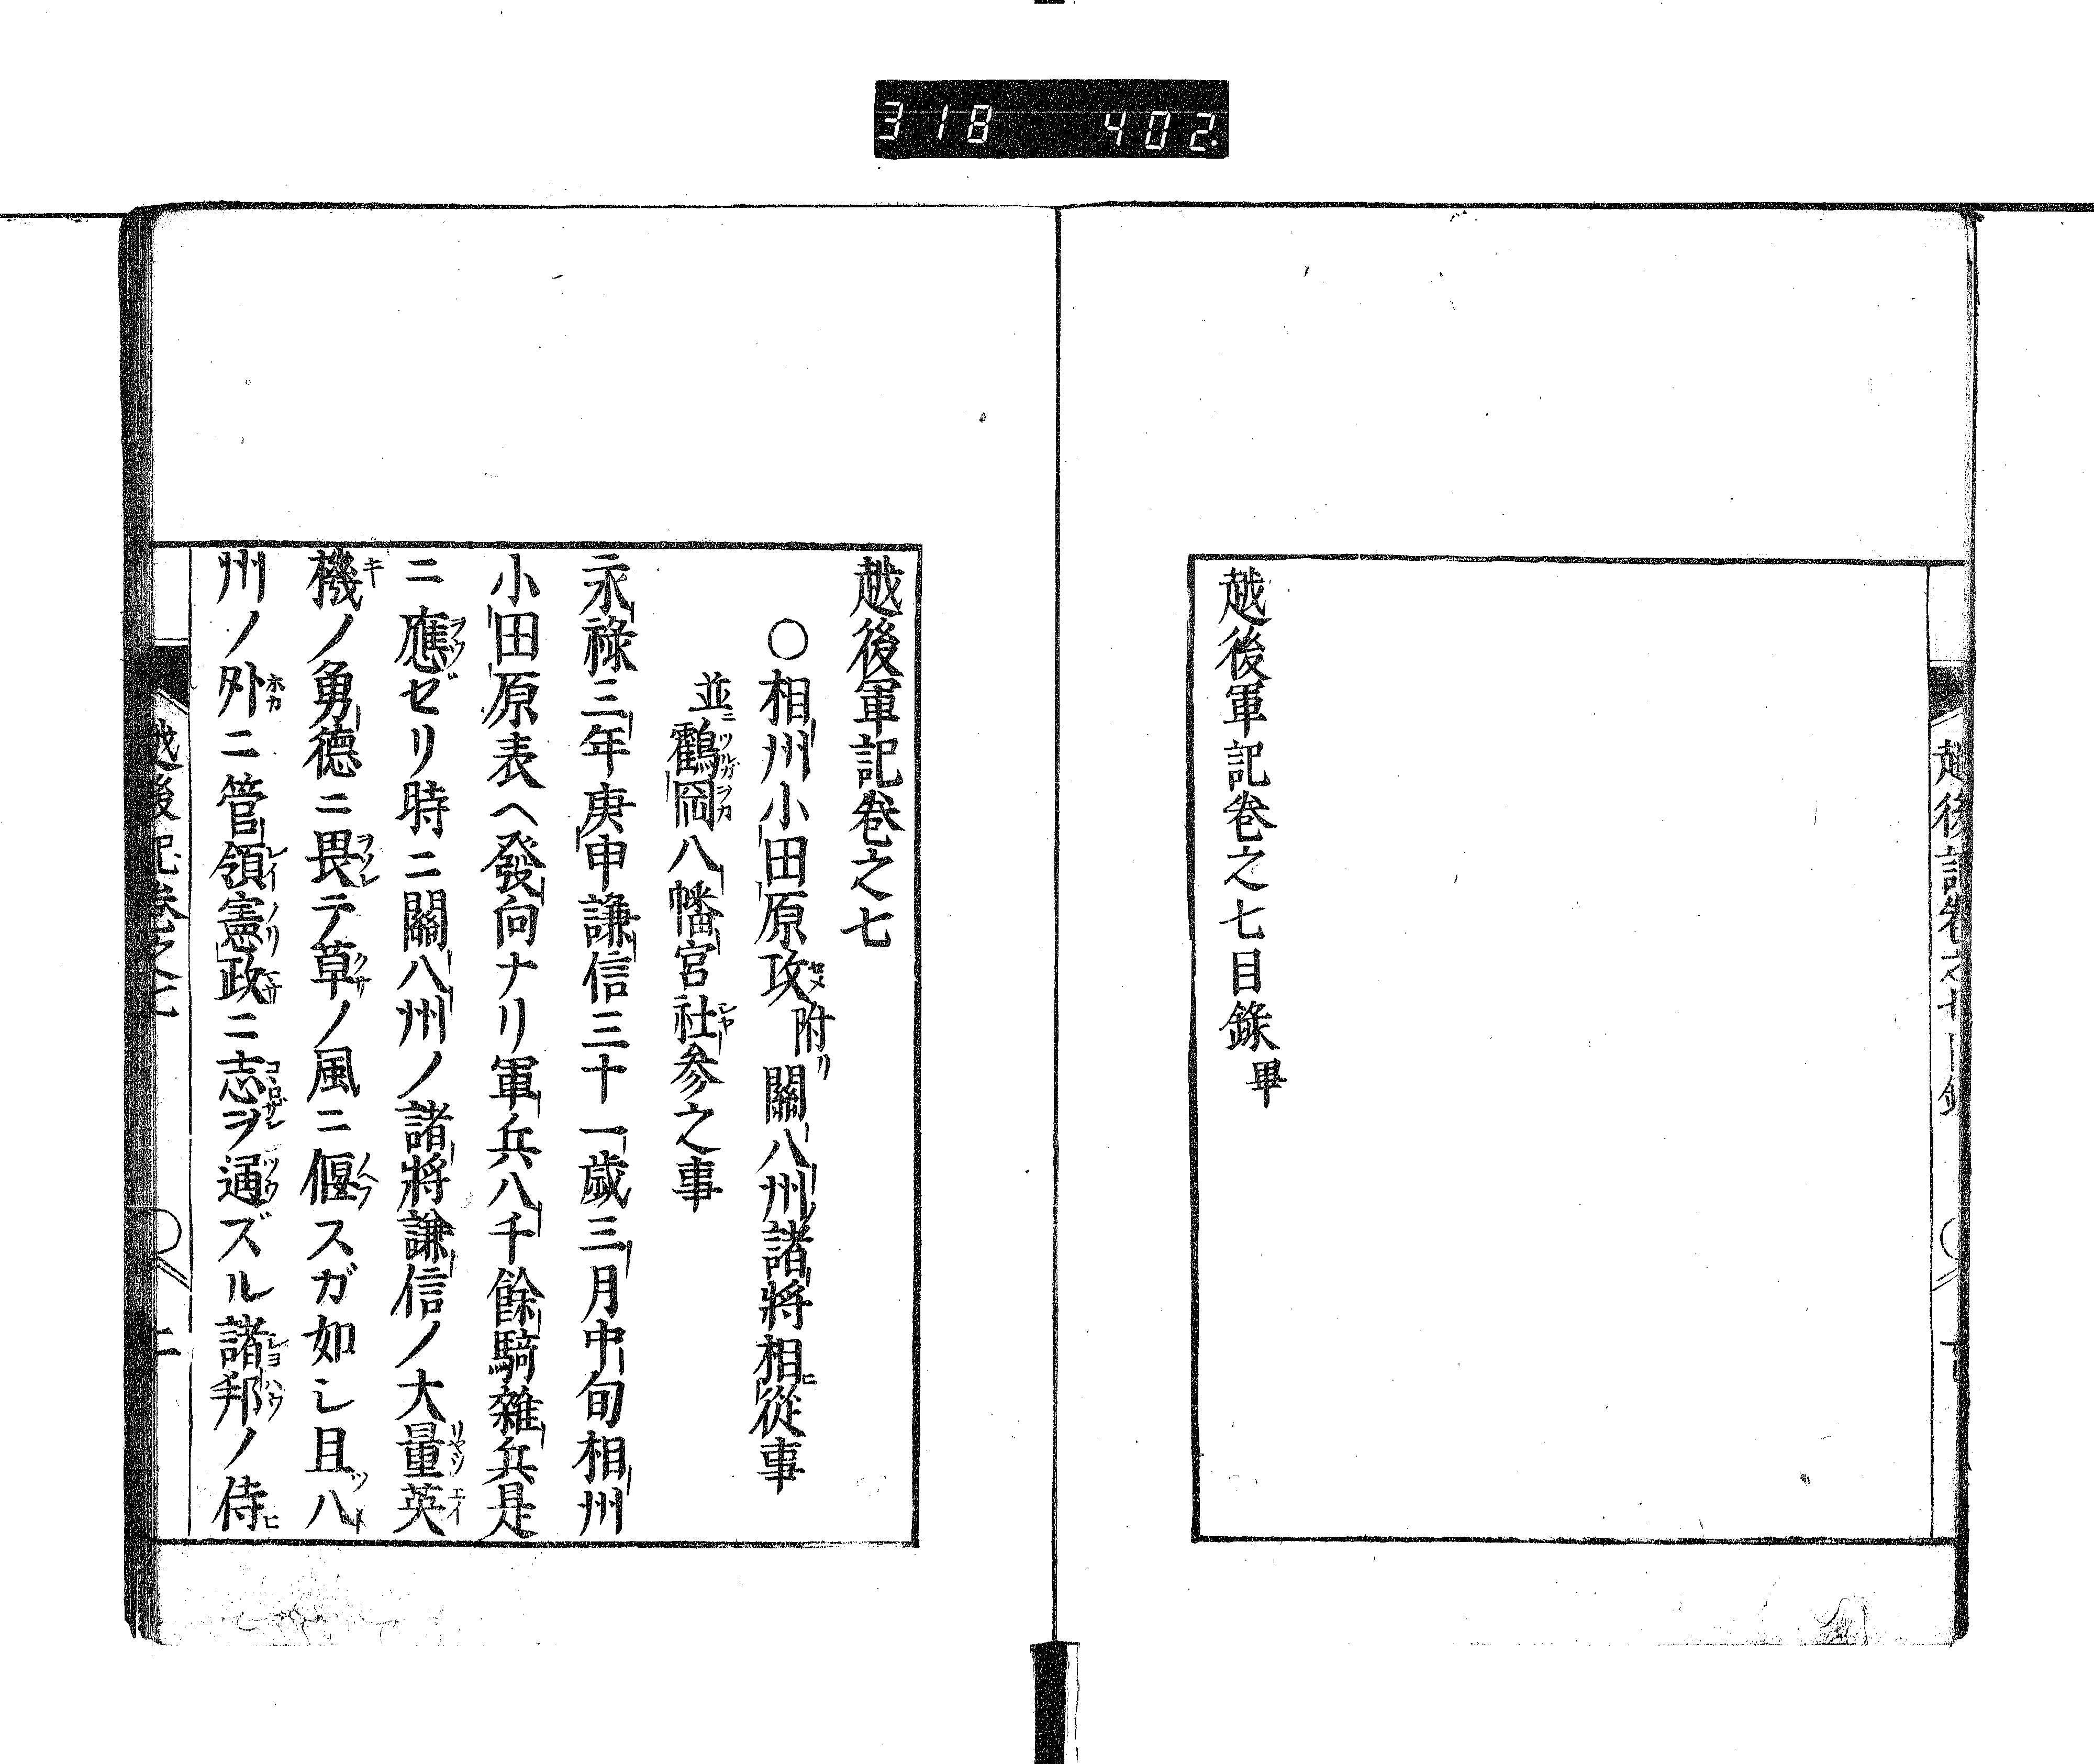 318 402
越後軍記巻之七目録畢
越後軍記巻之七
○相州小田原攻附リ關八州諸將相從事
並ニ鶴岡八幡宮社参之事
永祿三年庚申謙信三十一歳三月中旬相州
小田原表ヘ發向ナリ軍兵八千餘騎雜兵是
ニ應ゼリ時ニ關八州ノ諸將謙信ノ大量英
機ノ勇徳ニ畏テ草ノ風ニ偃スガ如シ且八
州ノ外ニ管領憲政ニ志ヲ通ズル諸邦ノ侍
越後記巻之七